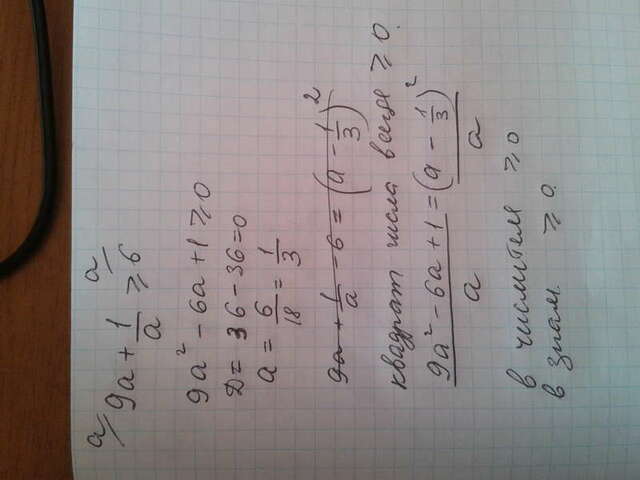 а/ 9a + 1/a ≥ 6
a
9a² - 6a + 1 ≥ 0
D = 36 - 36 = 0
a = 6/18 = 1/3
9a + 1/a - 6 = (a - 1/3)²
квадрат числа всегде ≥ 0.
(9a² - 6a + 1)/a = (a - 1/3)²/a
в числителе ≥ 0
в знам. ≥ 0.